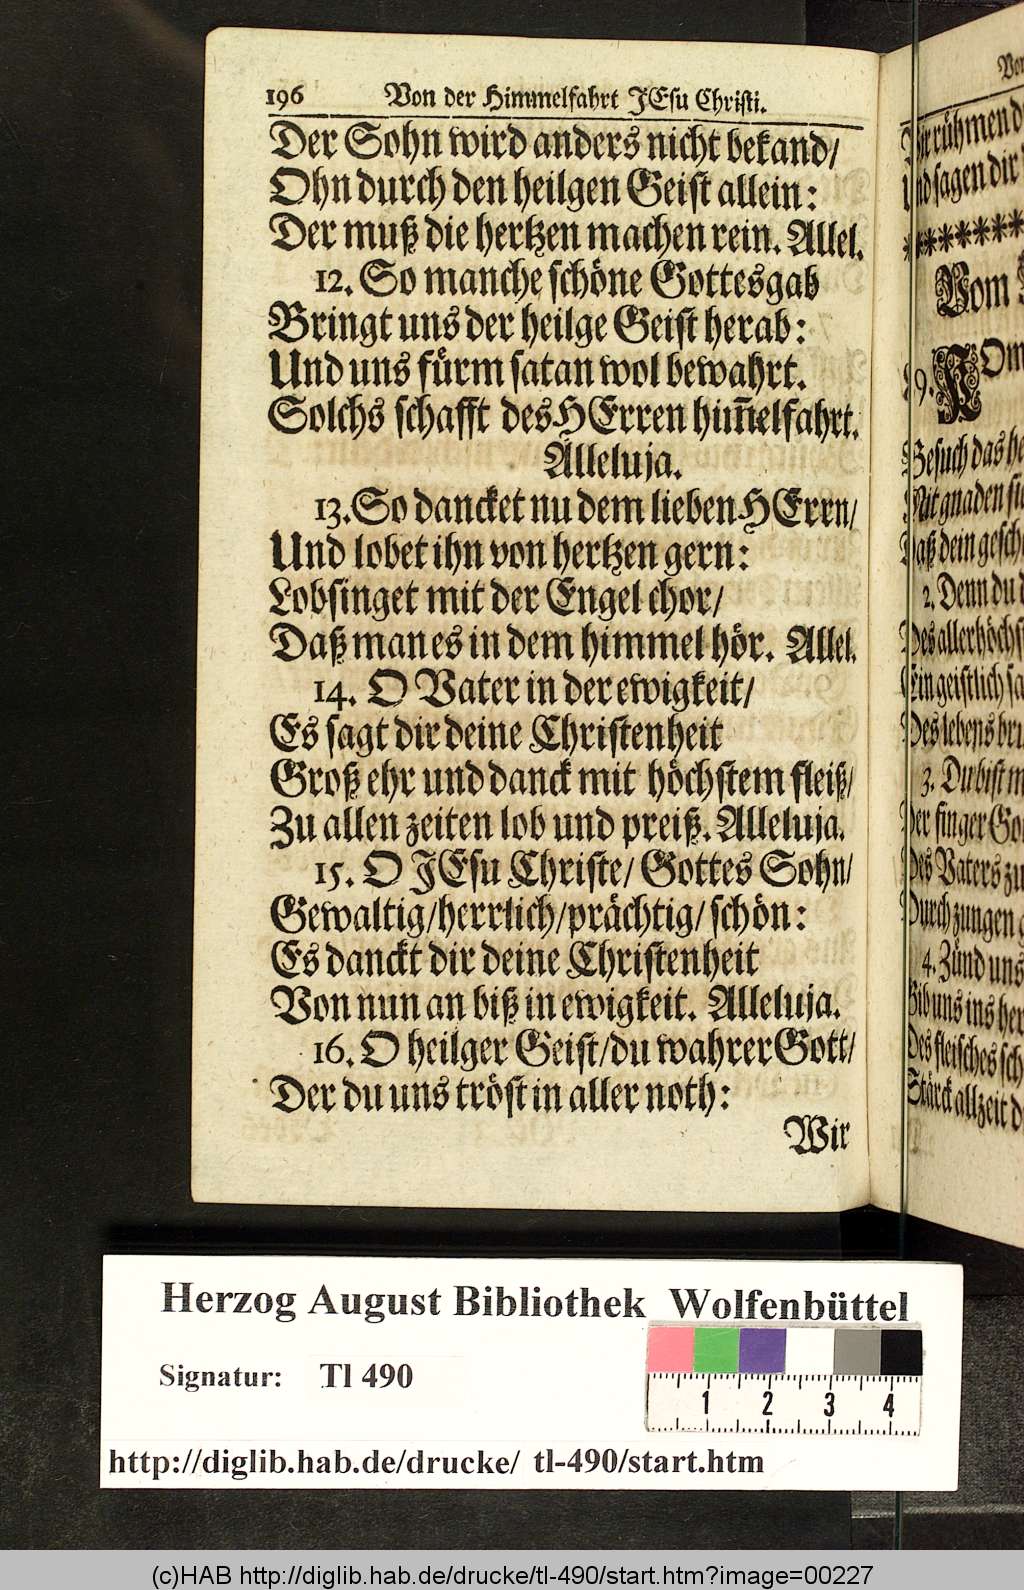 196 Von der Himmelfahrt JEsu Christi.
Der Sohn wird anders nicht bekand/
Ohn durch den heilgen Geist allein:
Der muß die hertzen machen rein. Allel.
12. So manche schöne Gottesgab
Bringt uns der heilge Geist herab:
Und uns fürm satan wol bewahrt.
Solchs schafft des HErren him̃elfahrt.
Alleluja.
13. So dancket nu dem lieben HErrn/
Und lobet ihn von hertzen gern:
Lobsinget mit der Engel chor/
Daß man es in dem himmel hör. Allel.
14. O Vater in der ewigkeit/
Es sagt dir deine Christenheit
Groß ehr und danck mit höchstem fleiß/
Zu allen zeiten lob und preiß. Alleluja.
15. O JEsu Christe/ Gottes Sohn/
Gewaltig/herrlich/prächtig/ schön:
Es danckt dir deine Christenheit
Von nun an biß in ewigkeit. Alleluja.
16. O heilger Geist/du wahrer Gott/
Der du uns tröst in aller noth:
Wir
rühmen
sagen dir
*******
Vom
9. KOm
Besuch das
Mit gnaden
Daß dein
2. Denn du
Des allerhöchs
Ein geistlich
Des lebens
3. Du bist
Der finger
Des Vaters
Durch zungen
4. Zünd uns
Gib uns ins
Des fleisches
Stärck allzeit
Herzog August Bibliothek Wolfenbüttel
Signatur: Tl 490
1 2 3 4
http://diglib.hab.de/drucke/ tl-490/start.htm
(c)HAB http://diglib.hab.de/drucke/tl-490/start.htm?image=00227